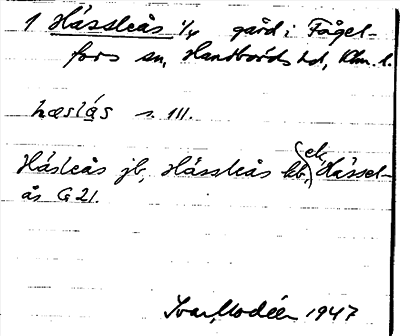 1 Hässleås 1/4 gård i Fågel-
fors sn, Handbörds hd, Klm. l.
hæslås s. III.
Håsleås jb, Hässleås kb, ek, Hässel-
ås G 21.
Ivar Modéer 1947